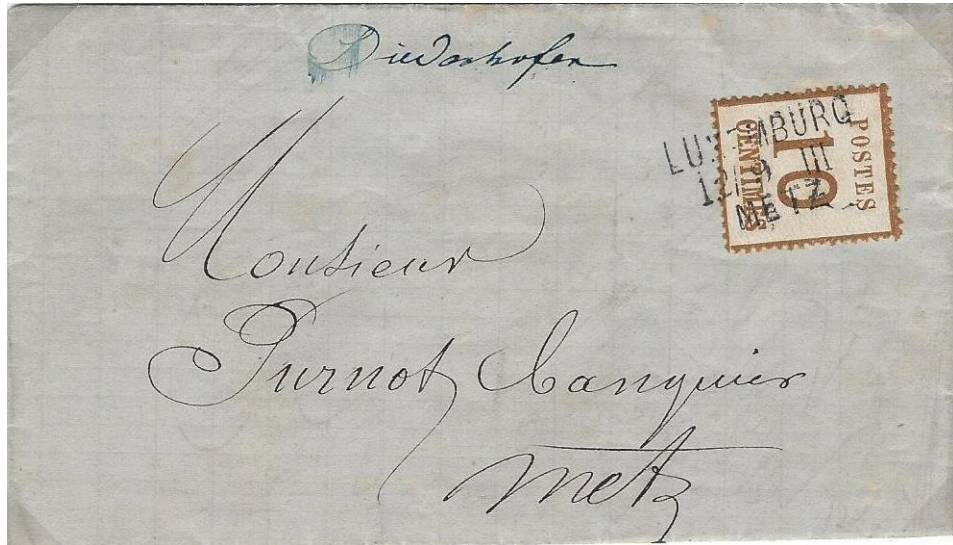 Diedenhofen
LUXEMBURG
12 9 III
METZ
POSTES
10
CENTIMES
Monsieur
Purnot banquier
Metz